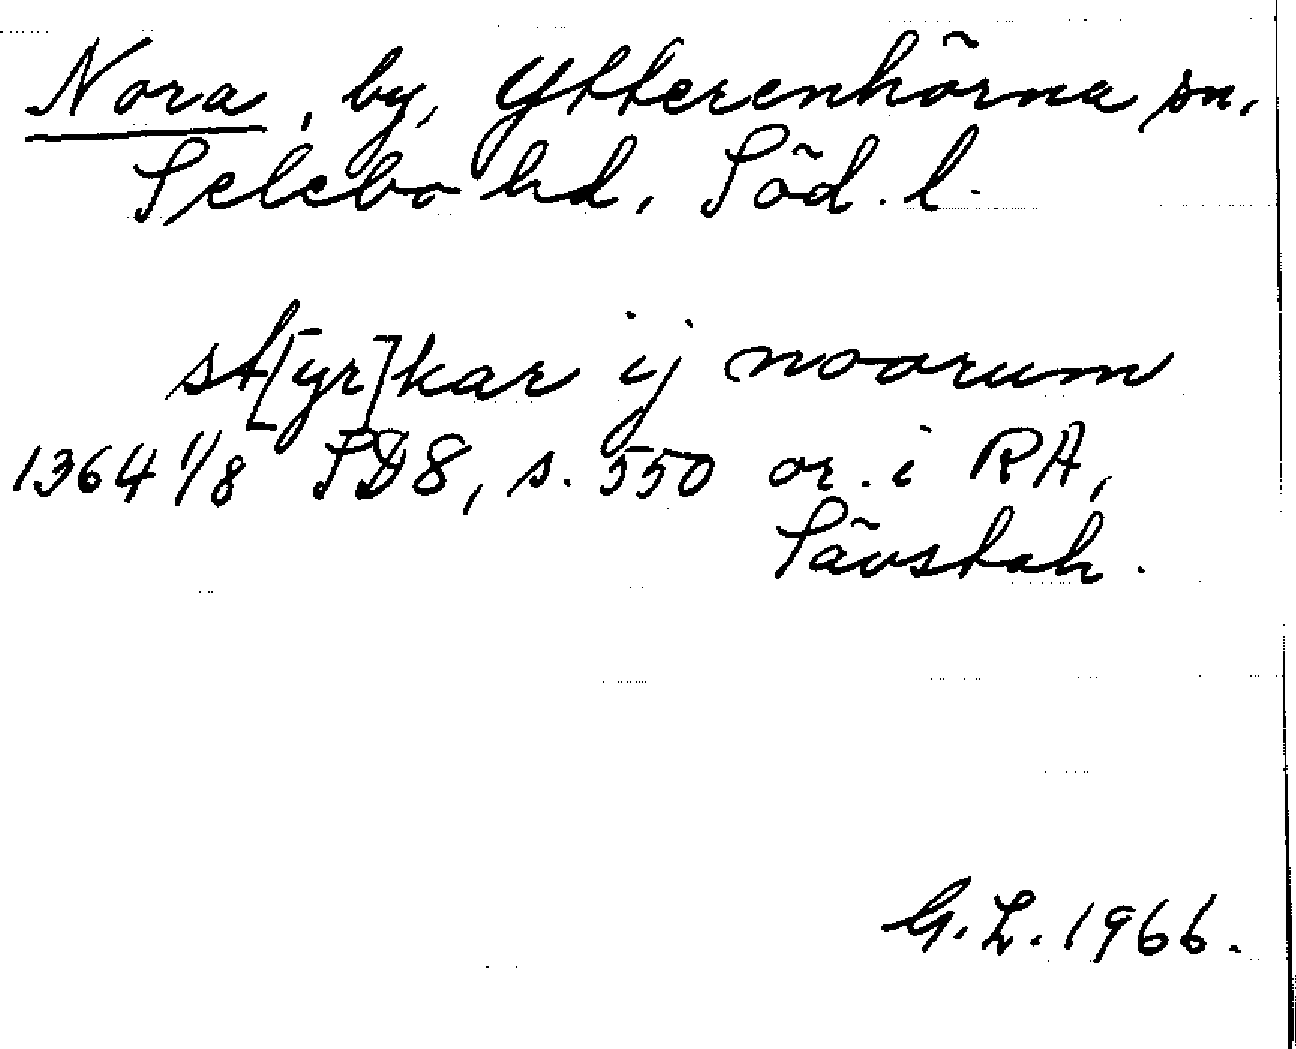 Nora, by, Ytterenhörna sn,
Selebo hd, Söd. l.
st[yr]kar ij noorum
1364 1/8 SD8, s. 550 or. i RA,
Sävstah.
G.L. 1966.